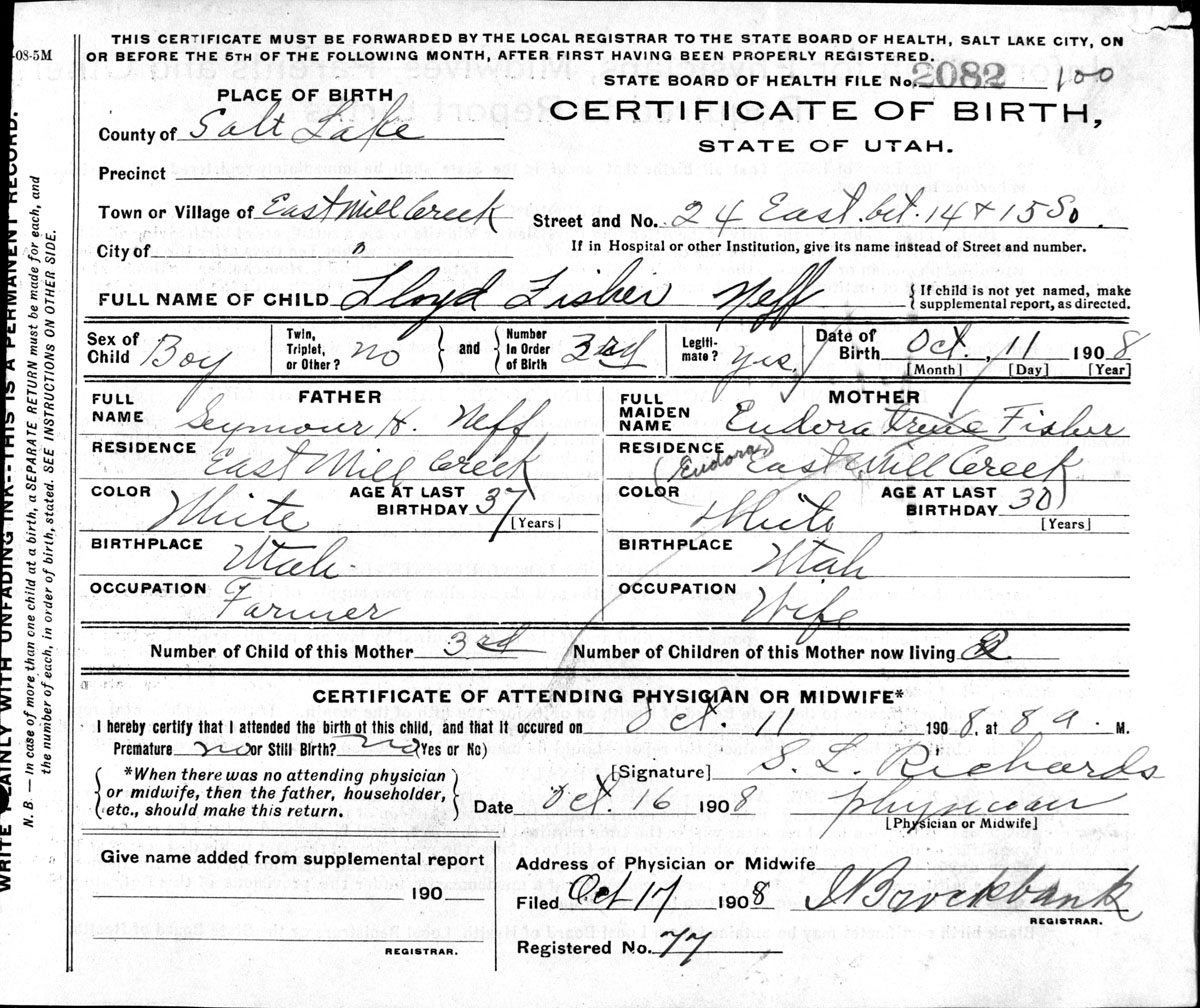 THIS CERTIFICATE MUST BE FORWARDED BY THE LOCAL REGISTRAR TO THE STATE BOARD OF HEALTH, SALT LAKE CITY, ON
OR BEFORE THE 5TH OF THE FOLLOWING MONTH, AFTER FIRST HAVING BEEN PROPERLY REGISTERED.
-08-5M
STATE BOARD OF HEALTH FILE No. 2082 100
PLACE OF BIRTH
CERTIFICATE OF BIRTH,
STATE OF UTAH.
County of Salt Lake
Precinct
Town or Village of East Mill Creek
Street and No. 24 East. bet. 14 & 15 So.
City of
If in Hospital or other Institution, give its name instead of Street and number.
FULL NAME OF CHILD Lloyd Fisher Neff
{ If child is not yet named, make
supplemental report, as directed.
Sex of Child Boy
Twin, Triplet, or Other? no
} and {
Number In Order of Birth 3rd
Legiti-mate? Yes.
Date of Birth Oct., 11 1908
[Month] [Day] [Year]
FATHER
FULL NAME Seymour H. Neff
RESIDENCE East Mill Creek
COLOR White
AGE AT LAST BIRTHDAY 37
[Years]
BIRTHPLACE Utah
OCCUPATION Farmer
MOTHER
FULL MAIDEN NAME Eudora Irene Fisher
(Eudora)
RESIDENCE East Mill Creek
COLOR White
AGE AT LAST BIRTHDAY 30
[Years]
BIRTHPLACE Utah
OCCUPATION Wife
Number of Child of this Mother 3rd
Number of Children of this Mother now living
CERTIFICATE OF ATTENDING PHYSICIAN OR MIDWIFE*
I hereby certify that I attended the birth of this child, and that it occured on Oct. 11 1908, at 8 a. M.
Premature no or Still Birth? no (Yes or No)
{ *When there was no attending physician
or midwife, then the father, householder,
etc., should make this return. }
[Signature] S. L. Richards
Date Oct. 16 1908
physician
[Physician or Midwife]
Give name added from supplemental report
190
REGISTRAR.
Address of Physician or Midwife
Filed Oct 17 1908
J Brockbank
REGISTRAR.
Registered No. 77
WRITE PLAINLY WITH UNFADING INK--THIS IS A PERMANENT RECORD.
N. B. — In case of more than one child at a birth, a SEPARATE RETURN must be made for each, and
the number of each, in order of birth, stated. SEE INSTRUCTIONS ON OTHER SIDE.